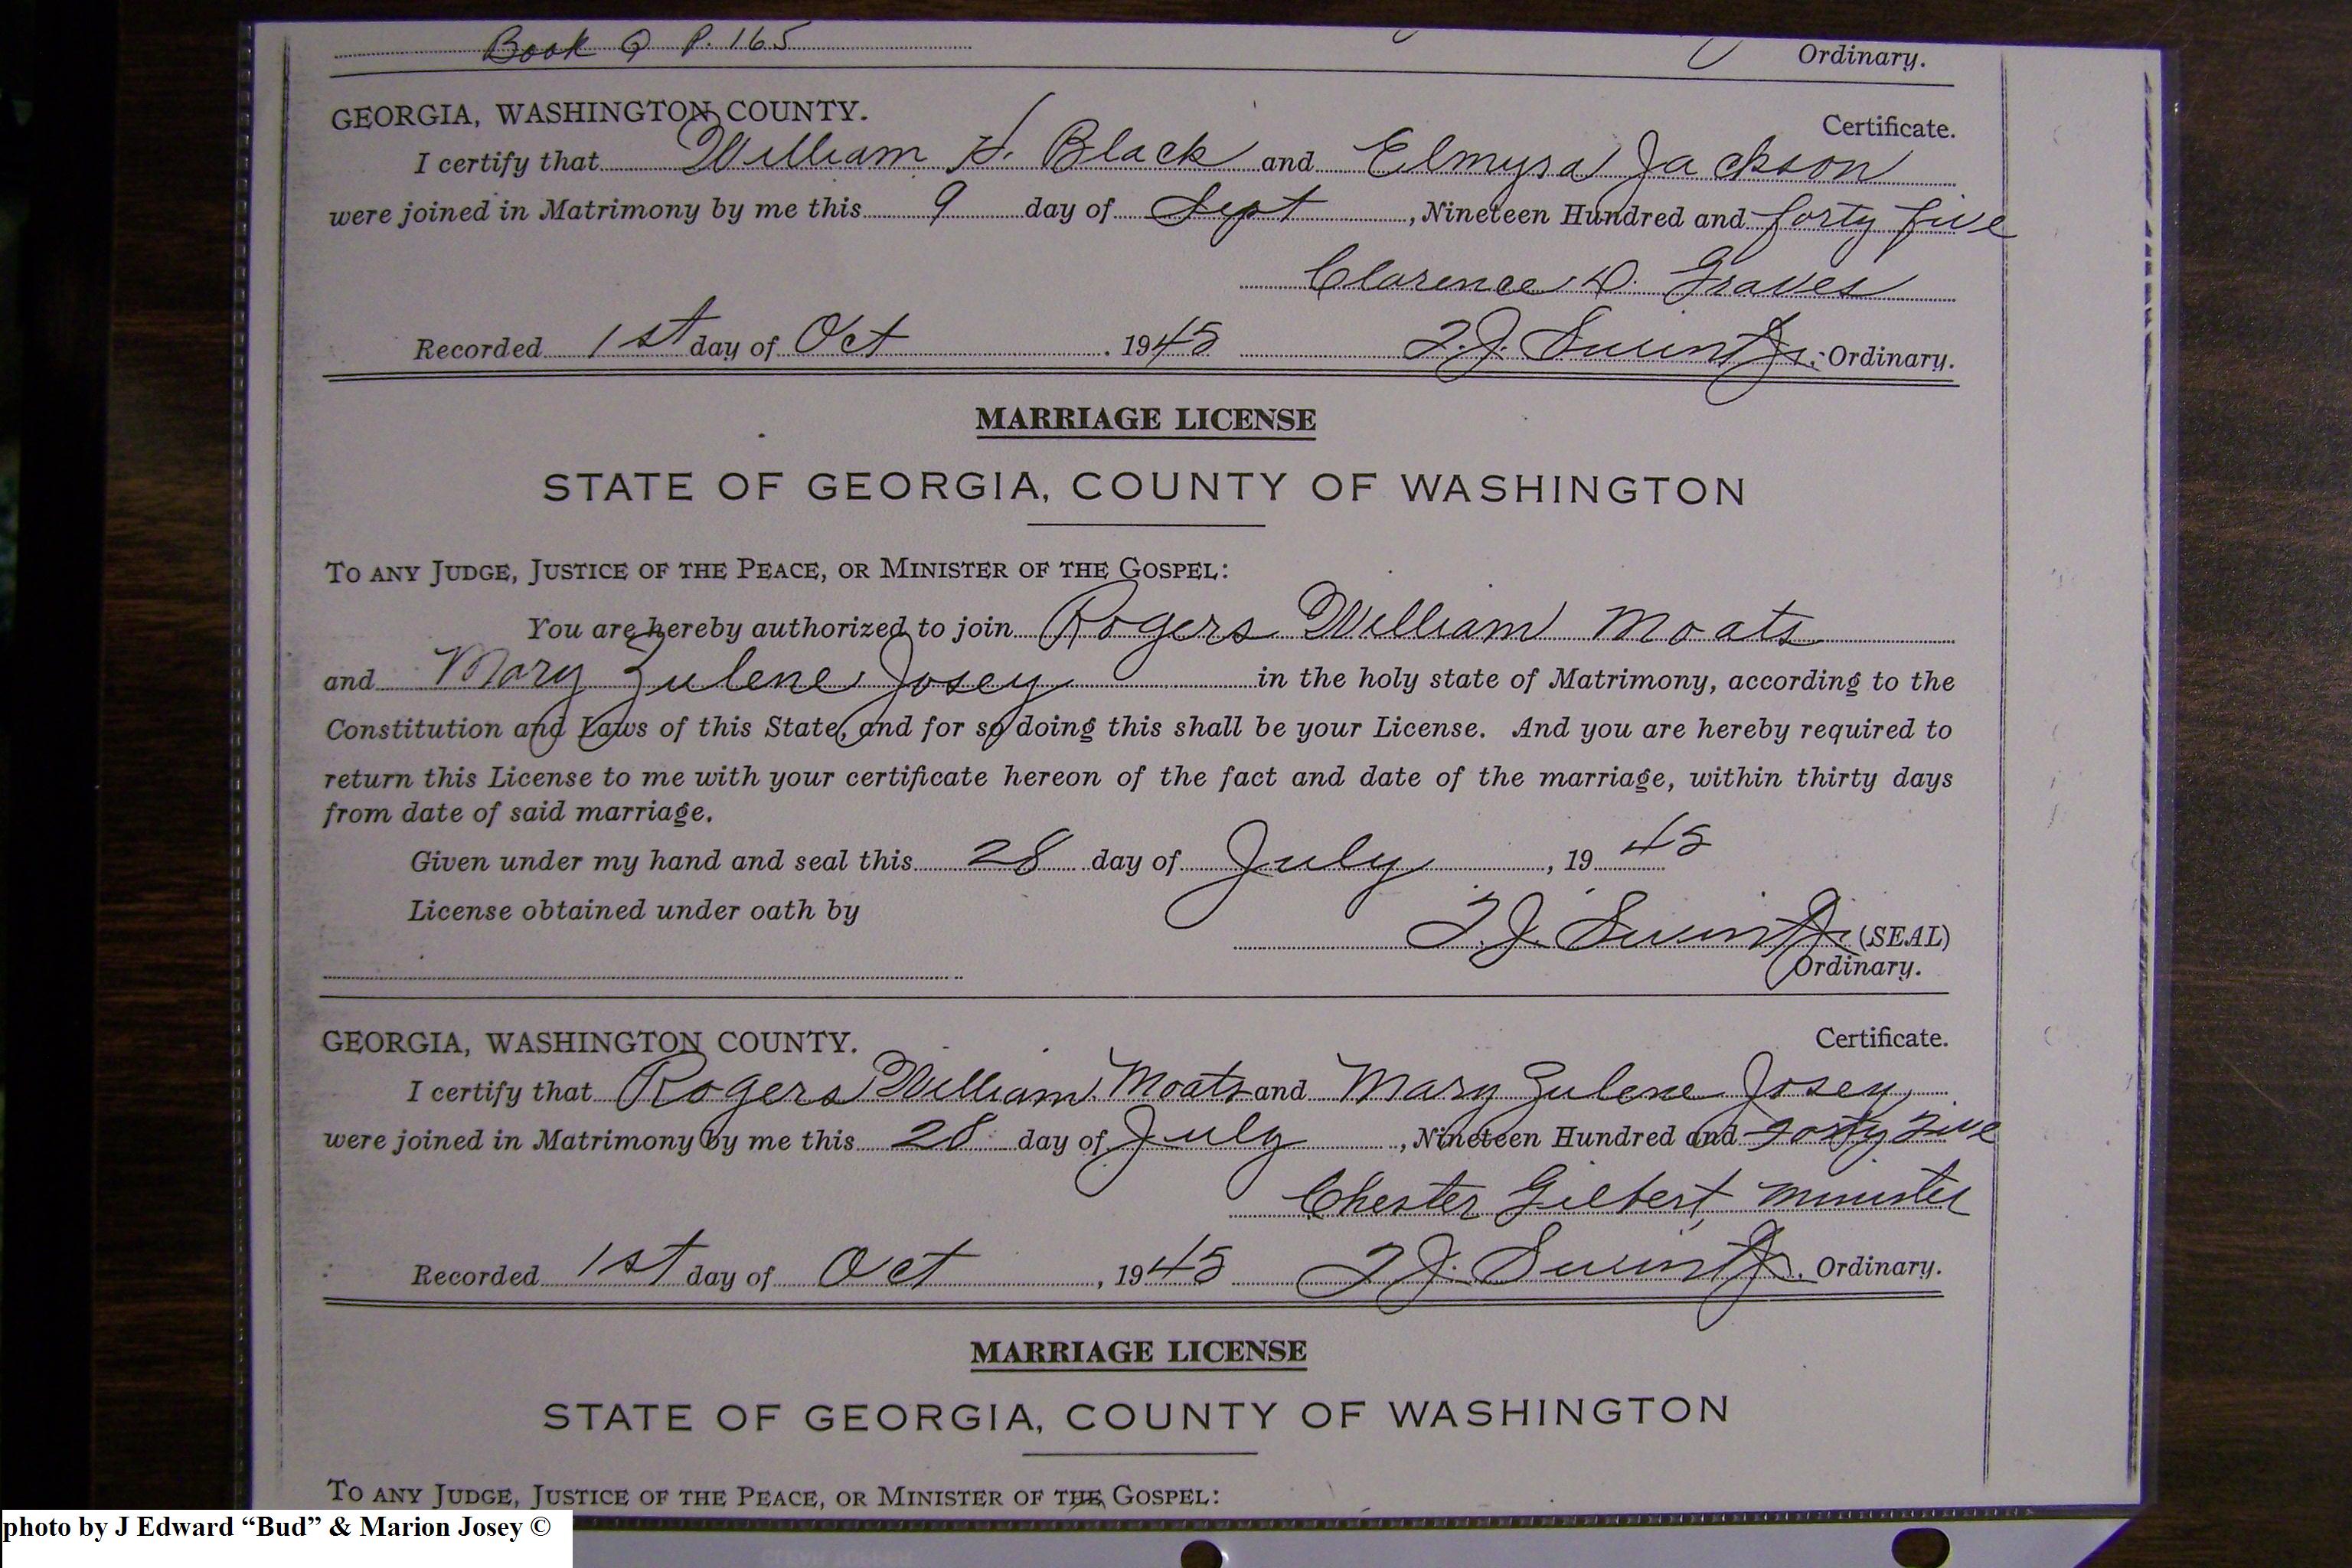 Book Q P. 165
Ordinary.
GEORGIA, WASHINGTON COUNTY.
Certificate.
I certify that William H. Black and Elmyra Jackson
were joined in Matrimony by me this 9 day of Sept, Nineteen Hundred and forty five
Clarence D. Graves
Recorded 1st day of Oct. 1945 T. J. Swint Jr. Ordinary.
MARRIAGE LICENSE
STATE OF GEORGIA, COUNTY OF WASHINGTON
TO ANY JUDGE, JUSTICE OF THE PEACE, OR MINISTER OF THE GOSPEL:
You are hereby authorized to join Rogers William Moats
and Mary Zulene Josey in the holy state of Matrimony, according to the
Constitution and Laws of this State, and for so doing this shall be your License. And you are hereby required to
return this License to me with your certificate hereon of the fact and date of the marriage, within thirty days
from date of said marriage.
Given under my hand and seal this 28 day of July, 1945
License obtained under oath by
T. J. Swint Jr. (SEAL)
Ordinary.
GEORGIA, WASHINGTON COUNTY.
Certificate.
I certify that Rogers William Moats and Mary Zulene Josey
were joined in Matrimony by me this 28 day of July, Nineteen Hundred and forty five
Chester Gilbert, minister
Recorded 1st day of Oct, 1945 T. J. Swint Jr. Ordinary.
MARRIAGE LICENSE
STATE OF GEORGIA, COUNTY OF WASHINGTON
TO ANY JUDGE, JUSTICE OF THE PEACE, OR MINISTER OF THE GOSPEL:
photo by J Edward “Bud” & Marion Josey ©